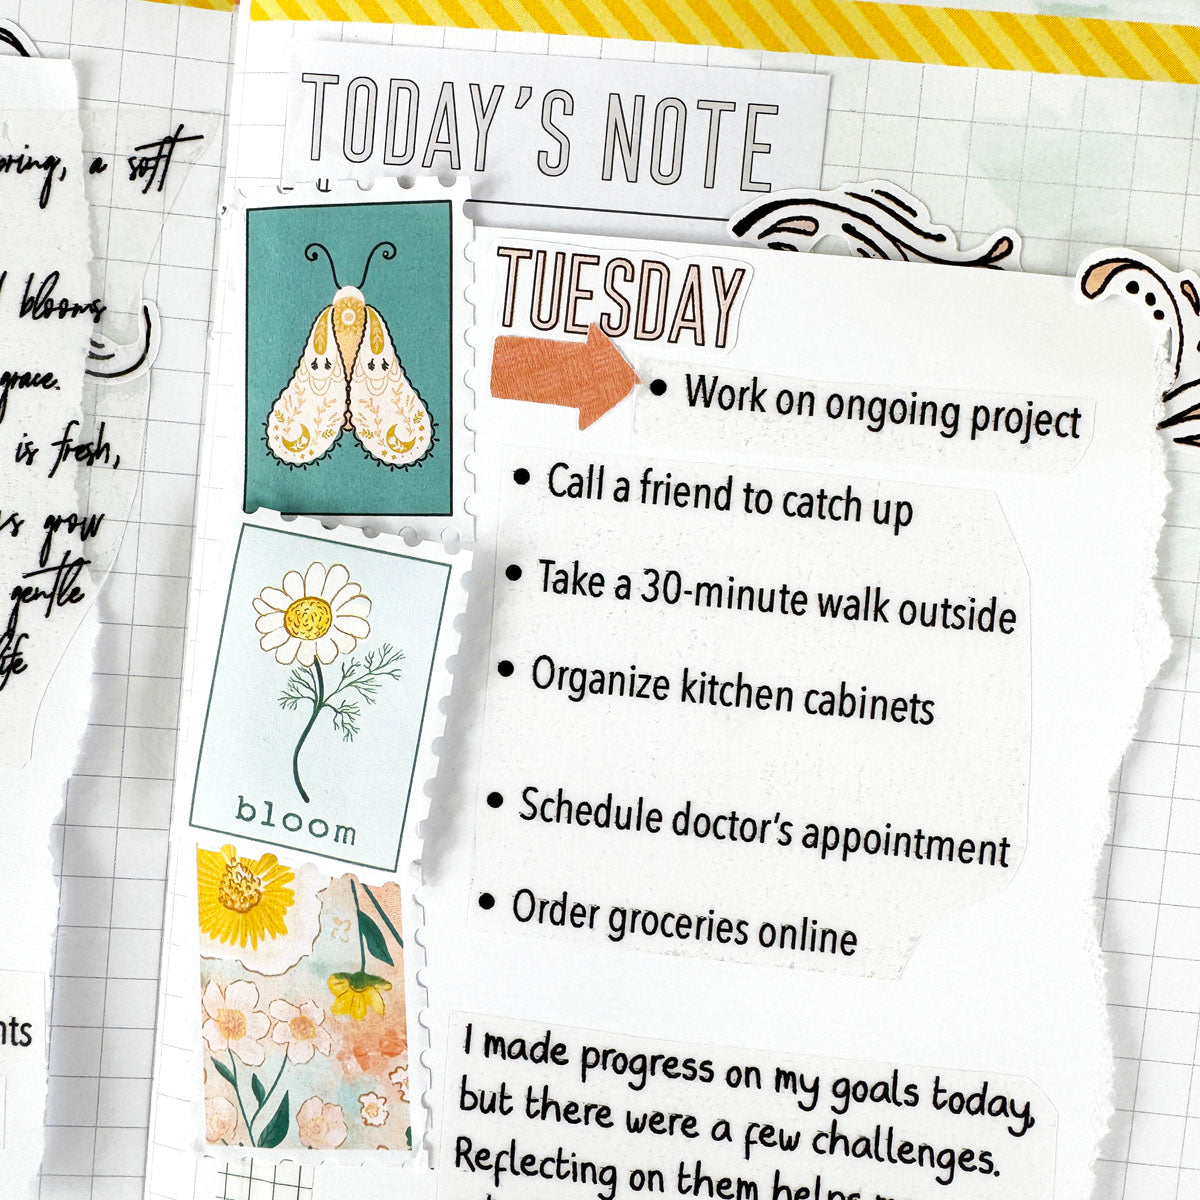 a soft
blooms
grace.
is fresh,
grow
gentle
TODAY'S NOTE
TUESDAY
• Work on ongoing project
• Call a friend to catch up
• Take a 30-minute walk outside
• Organize kitchen cabinets
• Schedule doctor's appointment
• Order groceries online
bloom
I made progress on my goals today,
but there were a few challenges.
Reflecting on them helps